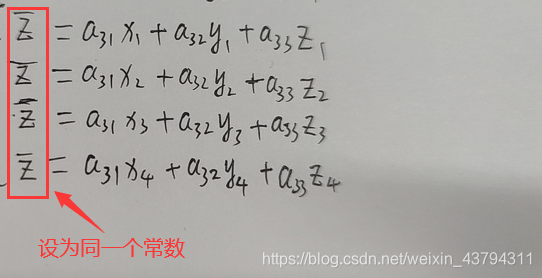 z̅ = a₃₁x₁ + a₃₂y₁ + a₃₃z₁
z̅ = a₃₁x₂ + a₃₂y₂ + a₃₃z₂
z̅ = a₃₁x₃ + a₃₂y₃ + a₃₃z₃
z̅ = a₃₁x₄ + a₃₂y₄ + a₃₃z₄
设为同一个常数
https://blog.csdn.net/weixin_43794311